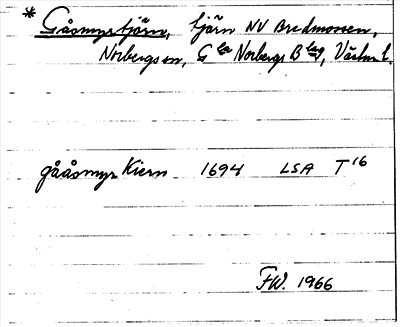 * Gåsmyrtjärn, tjärn NV Bredmossen,
Norbergs sn, G:la Norbergs Bslag, Västm. l.
gååsmyr Kiern 1694 LSA T16
F.W. 1966